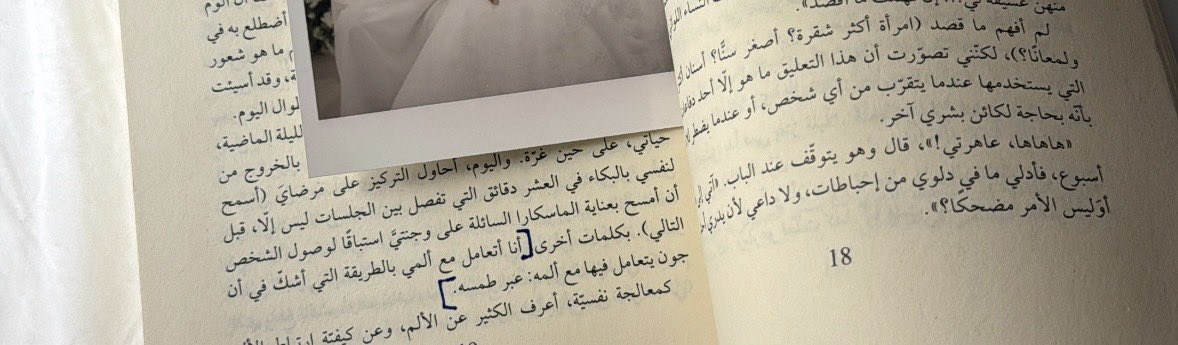 ما أقصد».
لم أفهم ما قصد (امرأة أكثر شقرة؟ أصغر سنًّا؟ أسنان
ولمعانًا؟)، لكنّني تصوّرت أن هذا التعليق ما هو إلّا أحد
التي يستخدمها عندما يتقرّب من أي شخص، أو عندما يضطر
بأنّه بحاجة لكائن بشري آخر.
«هاهاها، عاهرتي!»، قال وهو يتوقّف عند الباب. «آتي
أسبوع، فأدلي ما في دلوي من إحباطات، ولا داعي لأن يدري
أوَليس الأمر مضحكًا؟».
18
اليوم
أضطلع به في
ما هو شعور
وقد أسيئت
طوال اليوم.
الليلة الماضية،
بالخروج من
حياتي، على حين غرّة. واليوم، أحاول التركيز على مرضايَ (أسمح
لنفسي بالبكاء في العشر دقائق التي تفصل بين الجلسات ليس إلّا، قبل
أن أمسح بعناية الماسكارا السائلة على وجنتيَّ استباقًا لوصول الشخص
التالي). بكلمات أخرى [أنا أتعامل مع ألمي بالطريقة التي أشكّ في أن
جون يتعامل فيها مع ألمه: عبر طمسه.]
كمعالجة نفسيّة، أعرف الكثير عن الألم، وعن كيفيّة